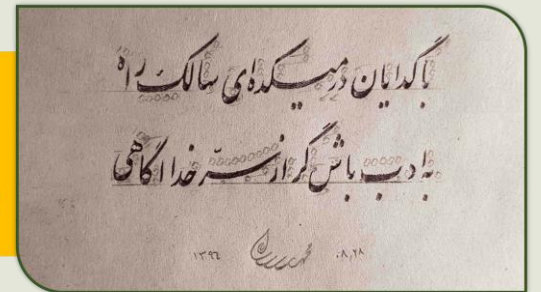 با گدایان در میکده ای سالک راه
با ادب باش گر از سرّ خدا آگاهی
۱۳۹۶ ۰۸,۲۸